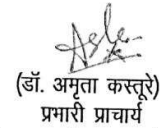 (डॉ. अमृता कस्तूरे)
प्रभारी प्राचार्य